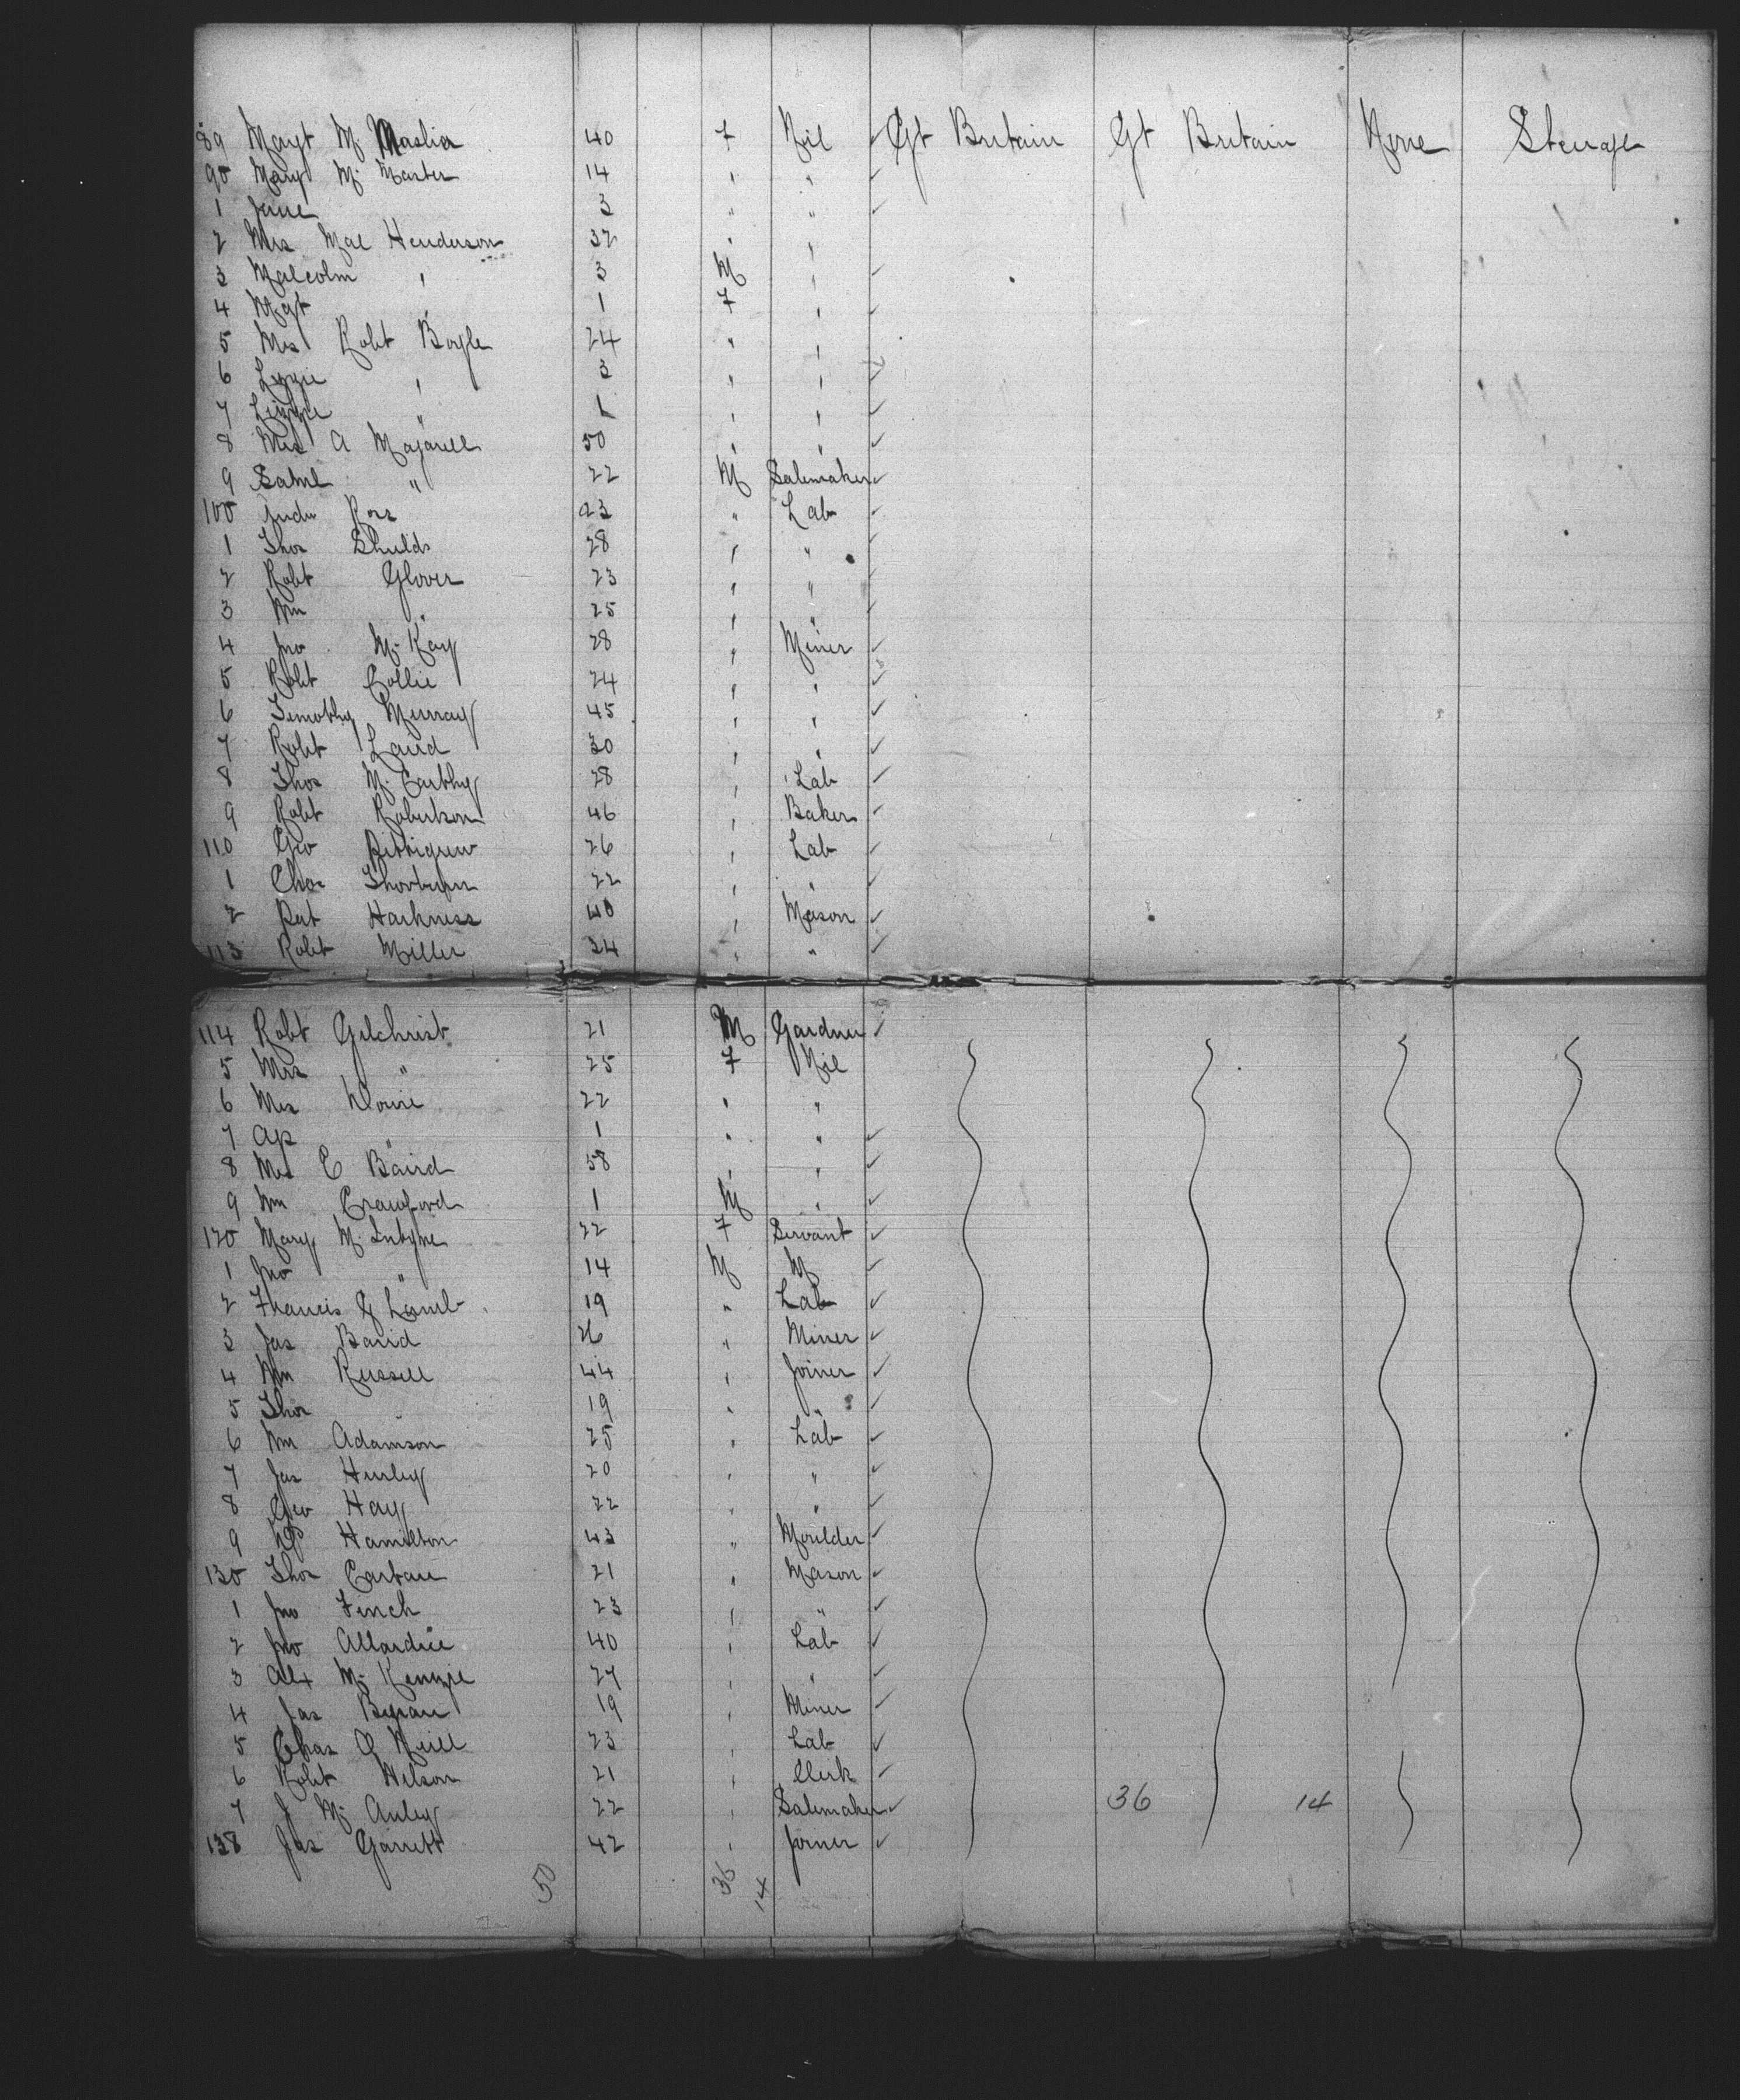 89 Magt Mc Maslia 40 F Nil ✓ Gt Britain Gt Britain None Steerage
90 Mary Mc Master 14 " " ✓
1 Jane 3 " " ✓
2 Mrs Mal Henderson 32 " "
3 Malcolm " 3 M " ✓
4 Mgt " 1 F " ✓
5 Mrs Robt Boyle 24 " "
6 Lizzie " 3 " " ✓
7 " 1 " " ✓
8 Mrs A 50 " " ✓
9 Saml " 22 M Salemaker ✓
100 Andw Ross 23 " Lab ✓
1 Thos Shields 28 " " ✓
2 Robt Glover 23 " " ✓
3 Wm " 25 " " ✓
4 Jno Mc Kay 28 " Miner ✓
5 Robt Collie 24 " " ✓
6 Timothy Murray 45 " " ✓
7 Robt Laird 30 " " ✓
8 Thos Mc Carthy 28 " Lab ✓
9 Robt Robertson 46 " Baker ✓
110 Geo Pettigrew 26 " Lab ✓
1 Chas Thorburn 22 " " ✓
2 Pat Harkness 40 " Mason ✓
113 Robt Miller 34 " " ✓
114 Robt Gilchrist 21 M Gardner ✓
5 Mrs " 25 F Nil
6 Mrs Downie 22 " "
7 Ap " 1 " " ✓
8 Mrs C Baird 58 " " ✓
9 Wm Crawford 1 M " ✓
120 Mary Mc Intyre 22 F Servant ✓
1 Jno " 14 M M ✓
2 Francis G Lamb 19 " Lab ✓
3 Jas Barid 26 " Miner ✓
4 Wm Russell 44 " Joiner ✓
5 Thos " 19 " " ✓
6 Wm Adamson 25 " Lab ✓
7 Jas Hurley 20 " " ✓
8 Geo Hay 22 " " ✓
9 Hamilton 43 " Moulder ✓
130 Thos 21 " Mason ✓
1 Jno Finch 23 " " ✓
2 Jno Allardice 40 " Lab ✓
3 Alex Mc Kenzie 27 " " ✓
4 Jas 19 " Miner ✓
5 Chas O Neill 23 " Lab ✓
6 Robt Wilson 21 " Clerk ✓
7 J Mc Auley 22 " Salemaker ✓ 36 14
138 Jas Garrett 42 " Joiner ✓
50 36 14